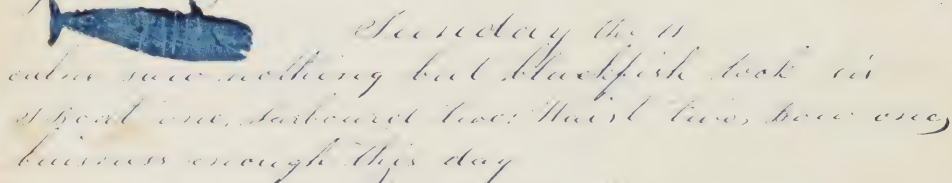 Sunday the 11
calm saw nothing but blackfish took six
st boat one, larboard two: Waist two, bow one,
buisness enough this day